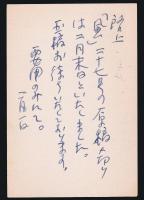 啓上
「風」二十七号の原稿〆切り
は二月末日といたしました。
玉稿お待ちいたしております。
要用のみにて。
一月一日